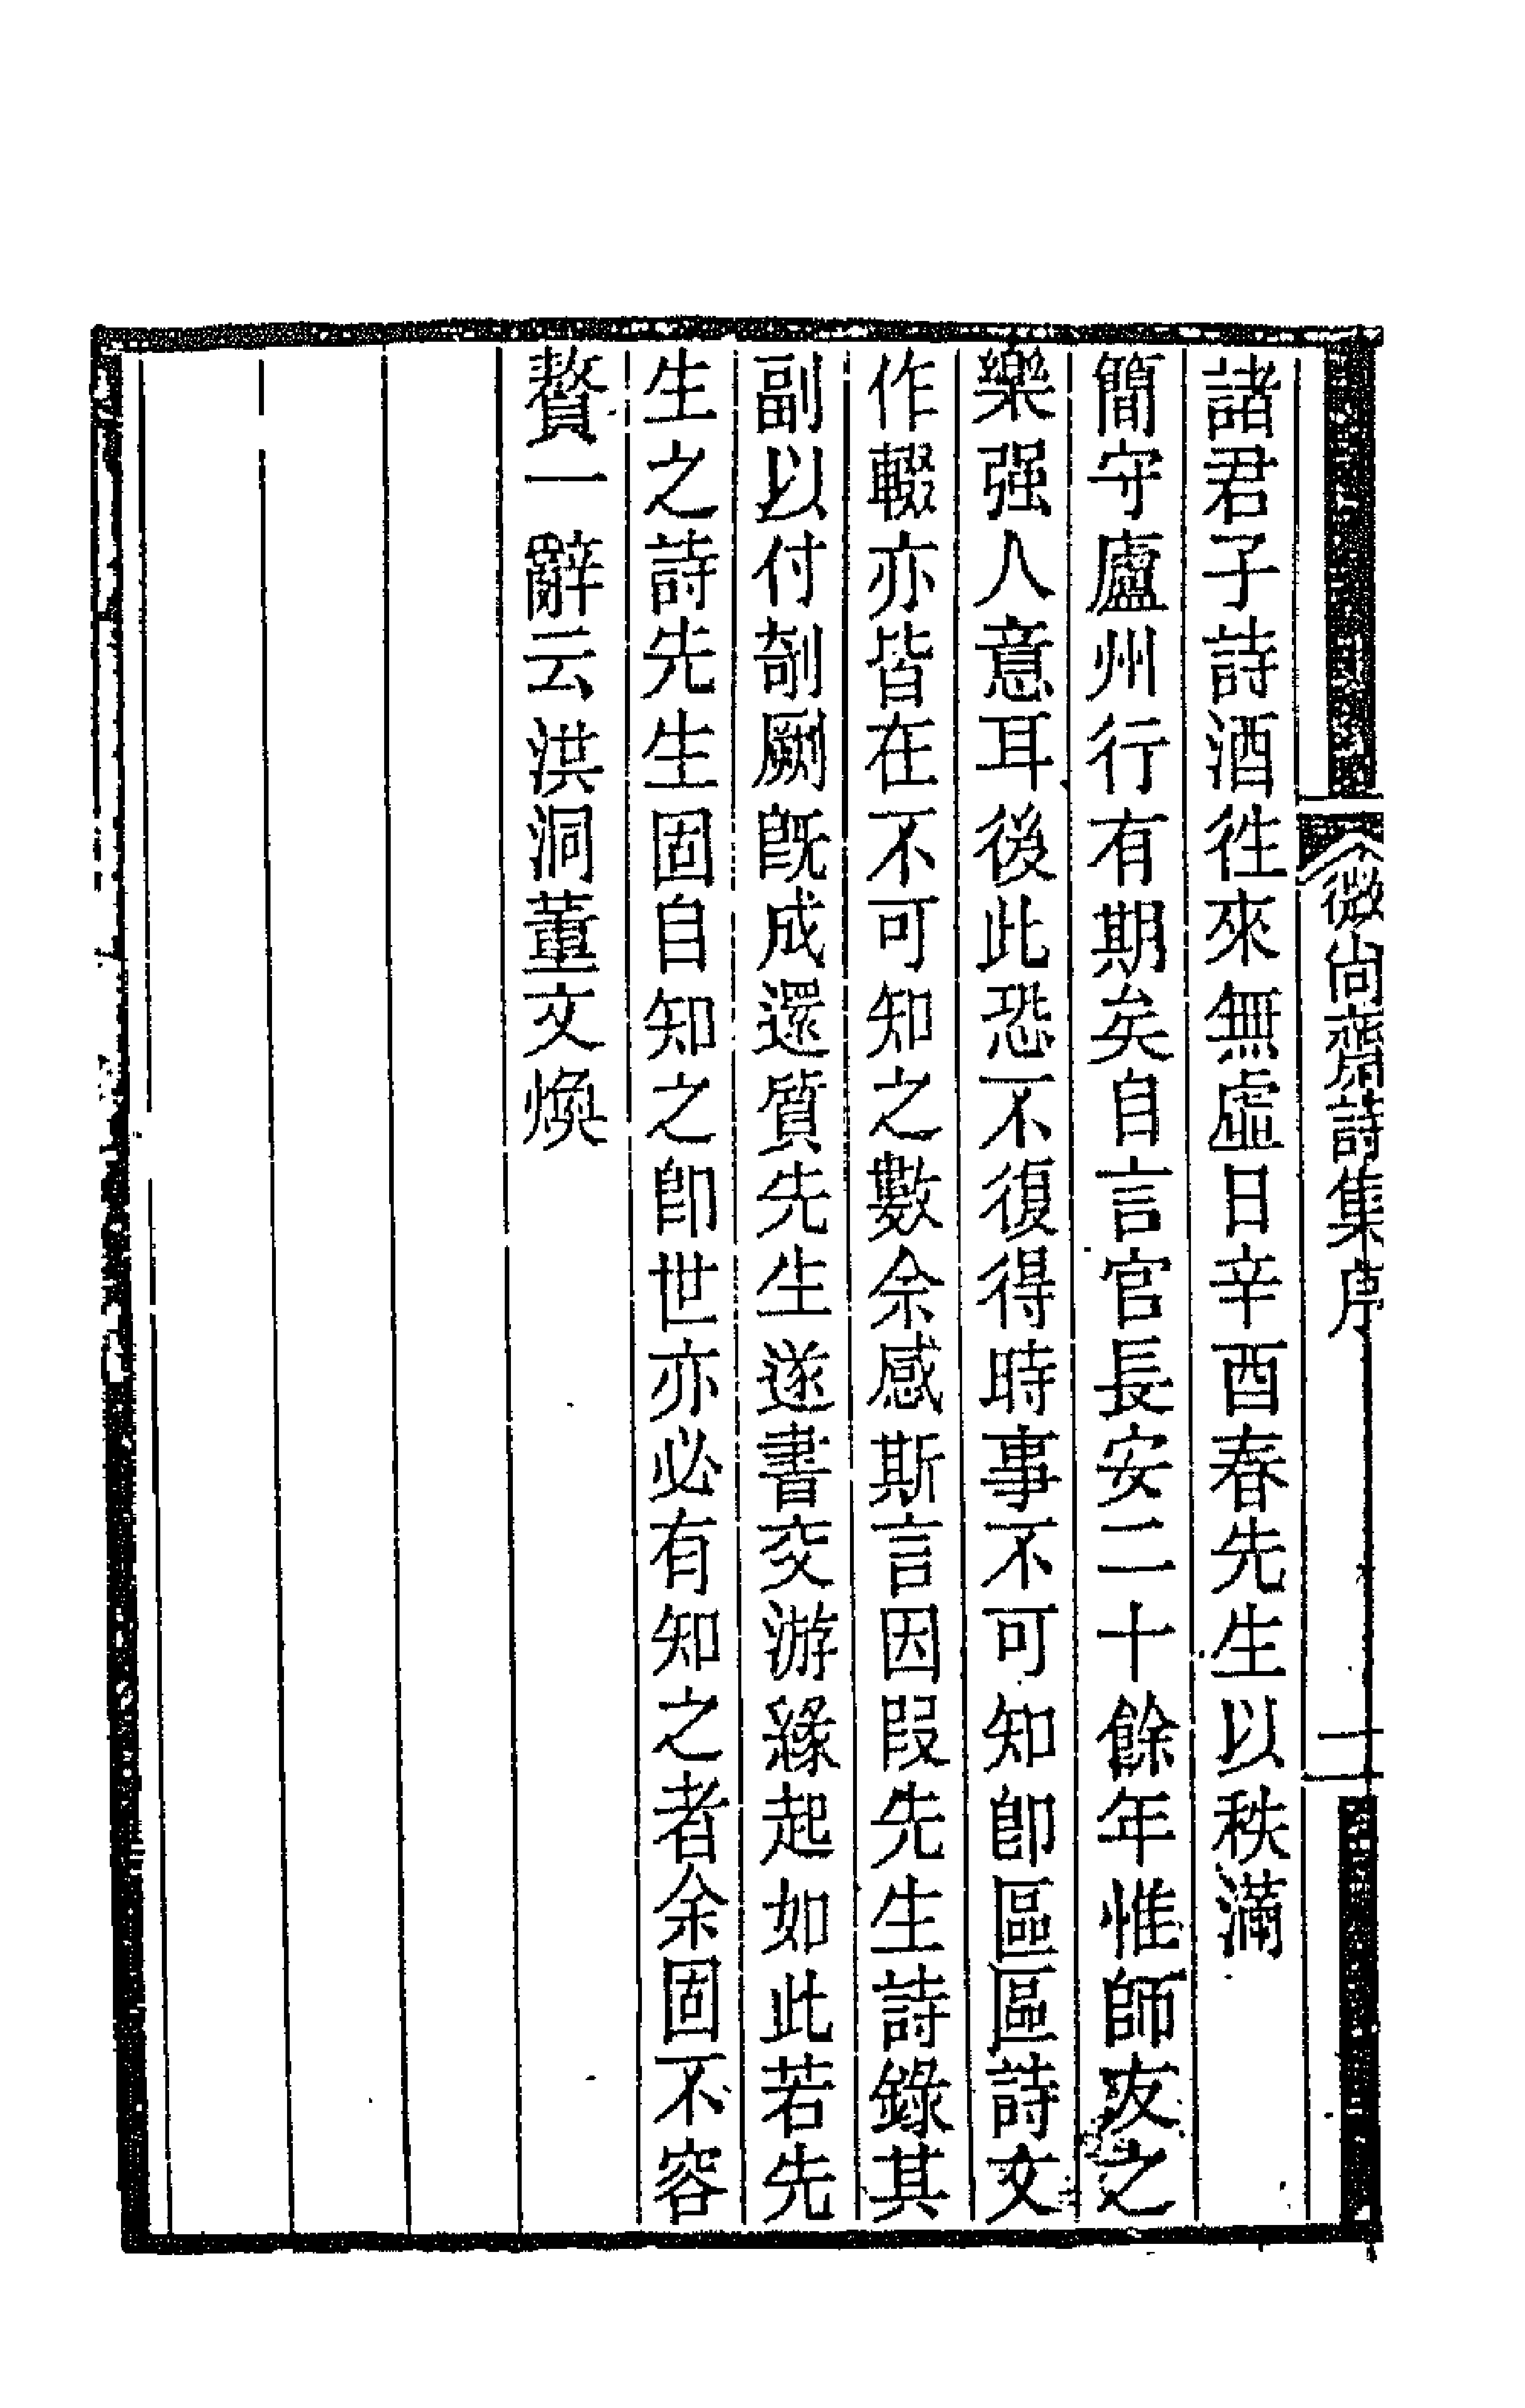 微尚齋詩集序
二
諸君子詩酒徃來無虛日辛酉春先生以秩滿
簡守廬州行有期矣自言官長安二十餘年惟師友之
樂强人意耳後此恐不復得時事不可知卽區區詩文
作輟亦皆在不可知之數余感斯言因叚先生詩錄其
副以付剞劂旣成還質先生遂書交游緣起如此若先
生之詩先生固自知之卽世亦必有知之者余固不容
贅一辭云洪洞董文煥